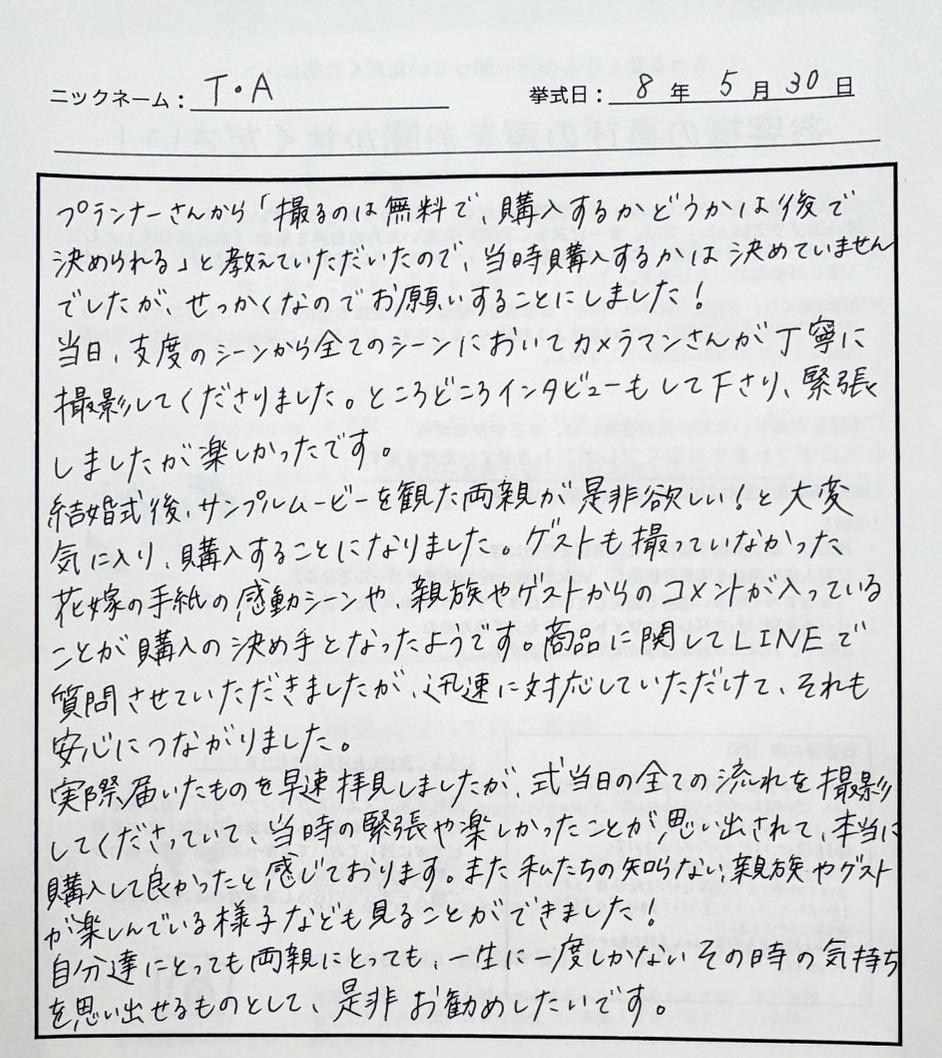 ニックネーム： T・A 挙式日： 8 年 5 月 30 日
プランナーさんから「撮るのは無料で、購入するかどうかは後で
決められる」と教えていただいたので、当時購入するかは決めていません
でしたが、せっかくなので、お願いすることにしました！
当日、支度のシーンから全てのシーンにおいてカメラマンさんが丁寧に
撮影してくださりました。ところどころインタビューもして下さり、緊張
しましたが楽しかったです。
結婚式後、サンプルムービーを観た両親が是非欲しい！と大変
気に入り、購入することになりました。ゲストも撮っていなかった
花嫁の手紙の感動シーンや、親族やゲストからのコメントが入っている
ことが購入の決め手となったようです。商品に関してLINEで
質問させていただきましたが、迅速に対応していただけて、それも
安心につながりました。
実際届いたものを早速拝見しましたが、式当日の全ての流れを撮影
してくださっていて、当時の緊張や楽しかったことが思い出されて、本当に
購入して良かったと感じております。また私たちの知らない、親族やゲスト
が楽しんでいる様子なども見ることができました！
自分達にとっても両親にとっても、一生に一度しかないその時の気持ち
を思い出せるものとして、是非お勧めしたいです。